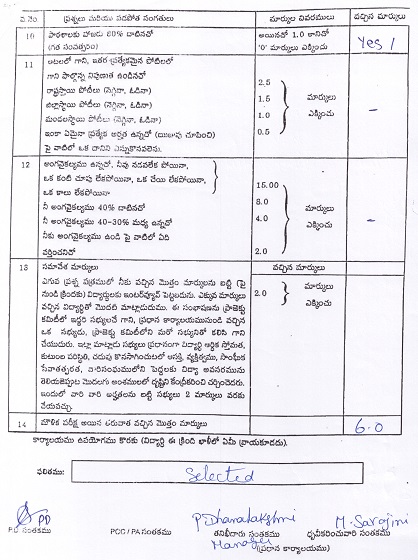 వ.నెం ప్రశ్నలు మరియు సదరోక్త సంగతులు మార్కుల వివరములు వచ్చిన మార్కులు
10 పాఠశాలకు హాజరు 60% దాటినచో అయినచో 1.0 కానిచో Yes /
(గత సంవత్సరం) '0' మార్కులు ఎక్కించు
11 ఆటలలో గాని, ఇతర ప్రత్యేకమైన పోటీలలో
గాని పాల్గొన్న నిపుణత ఉండినచో 2.5
రాష్ట్రస్థాయి పోటీలు (నెగ్గినా, ఓడినా) 1.5 మార్కులు
జిల్లాస్థాయి పోటీలు (నెగ్గినా, ఓడినా) 1.0 ఎక్కించు –
మండలస్థాయి పోటీలు (నెగ్గినా, ఓడినా) 0.5
ఇంకా ఏమైనా ప్రత్యేక అర్హత ఉన్నచో (ఋజువు చూపించి)
పై వాటిలో ఒక దానిని ఎన్నుకొనవలెను.
12 అంగవైకల్యము ఉన్నచో, నీవు నడవలేక పోయినా,
ఒక కంటి చూపు లేకపోయినా, ఒక చేయి లేకపోయినా, 15.00
ఒక కాలు లేకపోయినా 8.0 మార్కులు
నీ అంగవైకల్యము 40% దాటినచో 4.0 ఎక్కించు –
నీ అంగవైకల్యము 40-30% మధ్య ఉన్నచో
నీకు అంగవైకల్యము ఉండి పై వాటిలో ఏది 2.0
వర్తించనిచో
13 సమావేశ మార్కులు వచ్చిన మార్కులు
ఎగువ ప్రశ్న పత్రములో నీకు వచ్చిన మొత్తం మార్కులను బట్టి (పై మార్కులు
నుండి క్రిందకు) విద్యార్థులకు ఇంటర్వ్యూకి పెట్టబడును. ఎక్కువ మార్కులు 2.0 ఎక్కించు
వచ్చిన విద్యార్థితో మొదట మాట్లాడుదుము. ఈ సంభాషణను ప్రాజెక్టు
కమిటీలో ఇద్దరి సభ్యులనే గాని, ప్రధాన కార్యాలయమునుండి వచ్చిన
ఒక సభ్యుడు, ప్రాజెక్టు కమిటీలోని మరో సభ్యునితో కలిసి గాని
చేయుదురు. ఇట్లా మాట్లాడు సభ్యులు ప్రధానంగా విద్యార్థి ఆర్థిక స్తోమత,
కుటుంబ పరిస్థితి, చదువు కొనసాగించుటలో ఆసక్తి, వ్యక్తిత్వము, సాంఘిక
మొదలగు అంశములలో దృష్టిని కేంద్రీకరించి చర్చించెదరు.
ఇందులో వారి వారి అర్హతలను బట్టి సభ్యులు 2 మార్కులు వరకు
వేయవచ్చు.
14 మౌఖిక పరీక్ష అయిన తరువాత వచ్చిన మొత్తం మార్కులు 6.0
కార్యాలయము ఉపయోగము కొరకు (విద్యార్థి ఈ క్రింది ఖాళీలో ఏమీ వ్రాయకూడదు).
ఫలితము: Selected
PD P Dhanalakshmi M. Sarojini
PD సంతకము PCC / PA సంతకము తనిఖీదారు సంతకము ధృవీకరించువారి సంతకము
Manager (ప్రధాన కార్యాలయం)